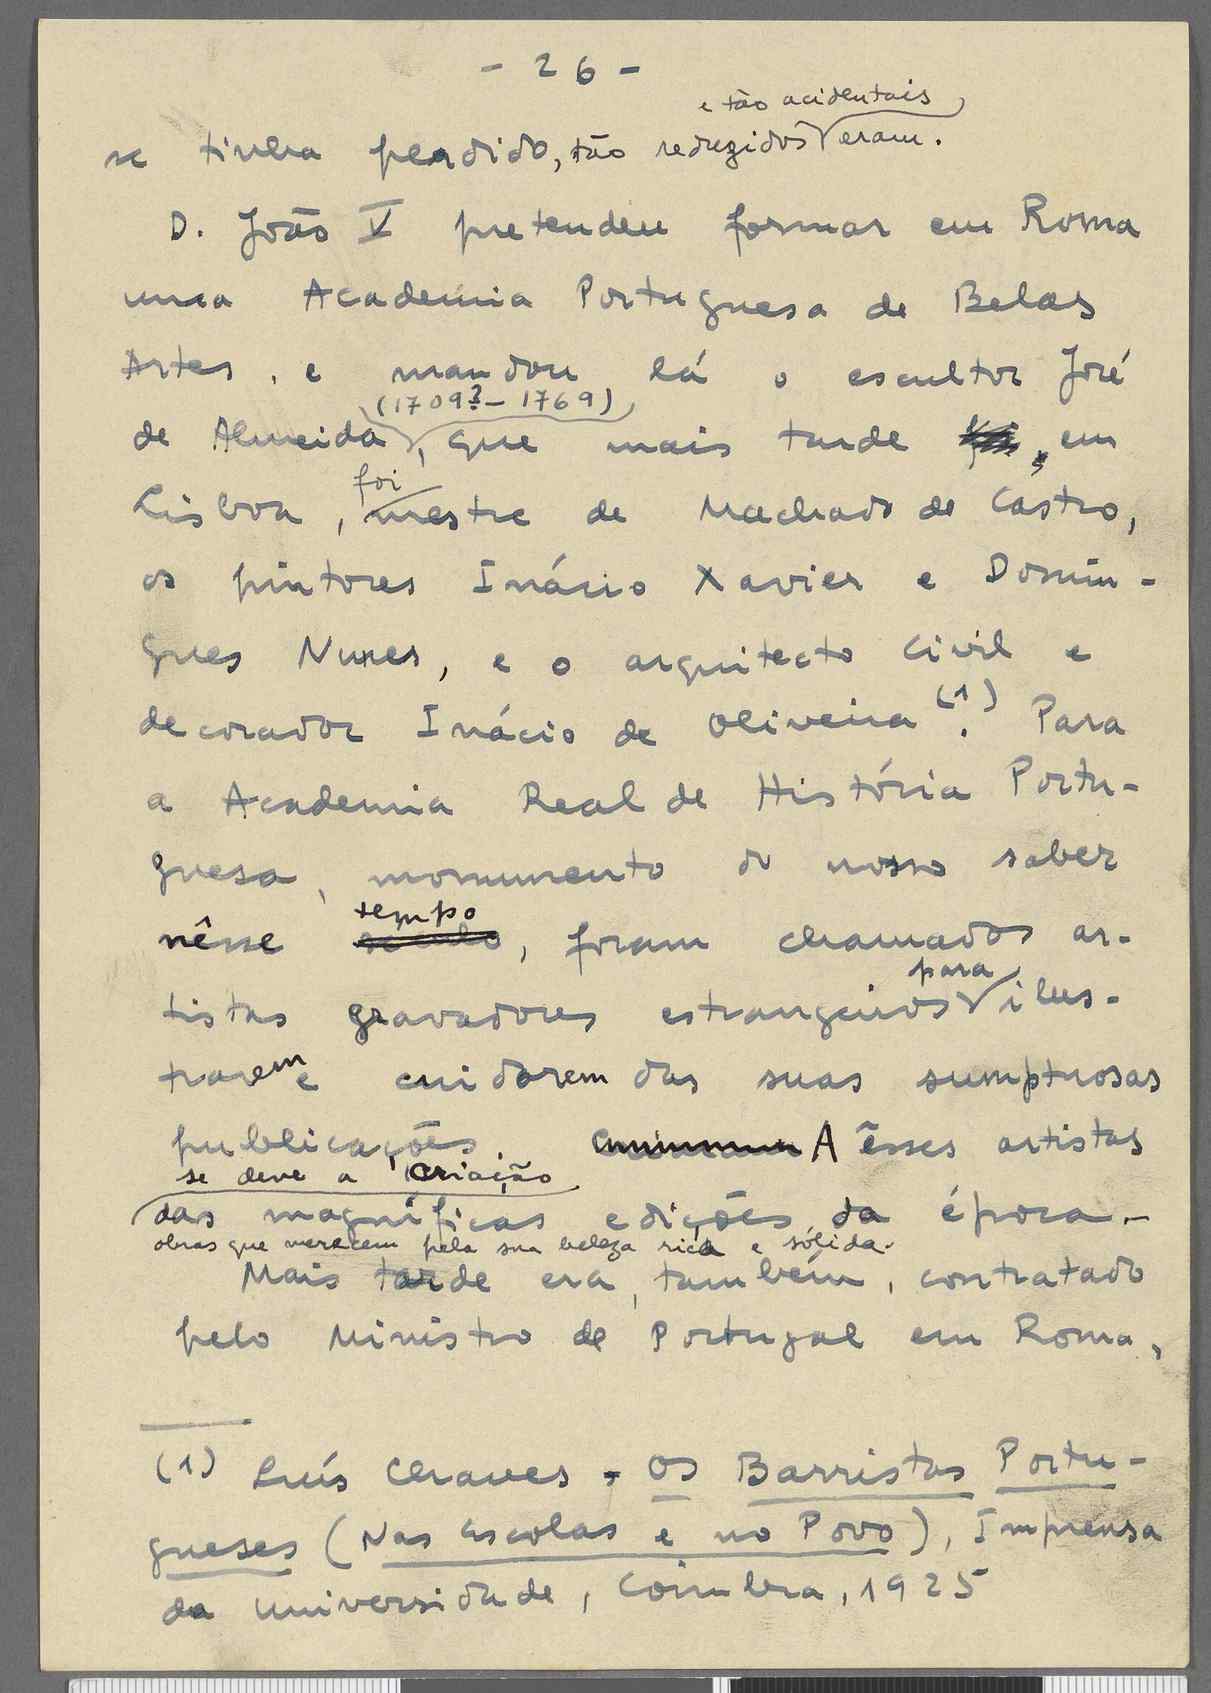 - 26 -
e tão acidentais
se tinha perdido, tão reduzidos eram.
D. João V pretendeu formar em Roma
uma Academia Portuguesa de Belas
Artes, e mandou lá o escultor José
(1709?-1769)
de Almeida, que mais tarde, em
foi
Lisboa, mestre de Machado de Castro,
os pintores Inácio Xavier e Domin-
gues Nunes, e o arquitecto civil e
decorador Inácio de Oliveira (1). Para
a Academia Real de História Portu-
guesa, monumento do nosso saber
tempo
nêsse século, foram chamados ar-
para
tistas gravadores estrangeiros ilus-
trarem e cuidarem das suas sumptuosas
publicações. A êsses artistas
se deve a criação
das magníficas edições da época.-
obras que merecem pela sua beleza rica e sólida.
Mais tarde era, também, contratado
pelo Ministro de Portugal em Roma,
(1) Luís Chaves - Os Barristas Portu-
gueses (Nas Escolas e no Povo), Imprensa
da Universidade, Coimbra, 1925